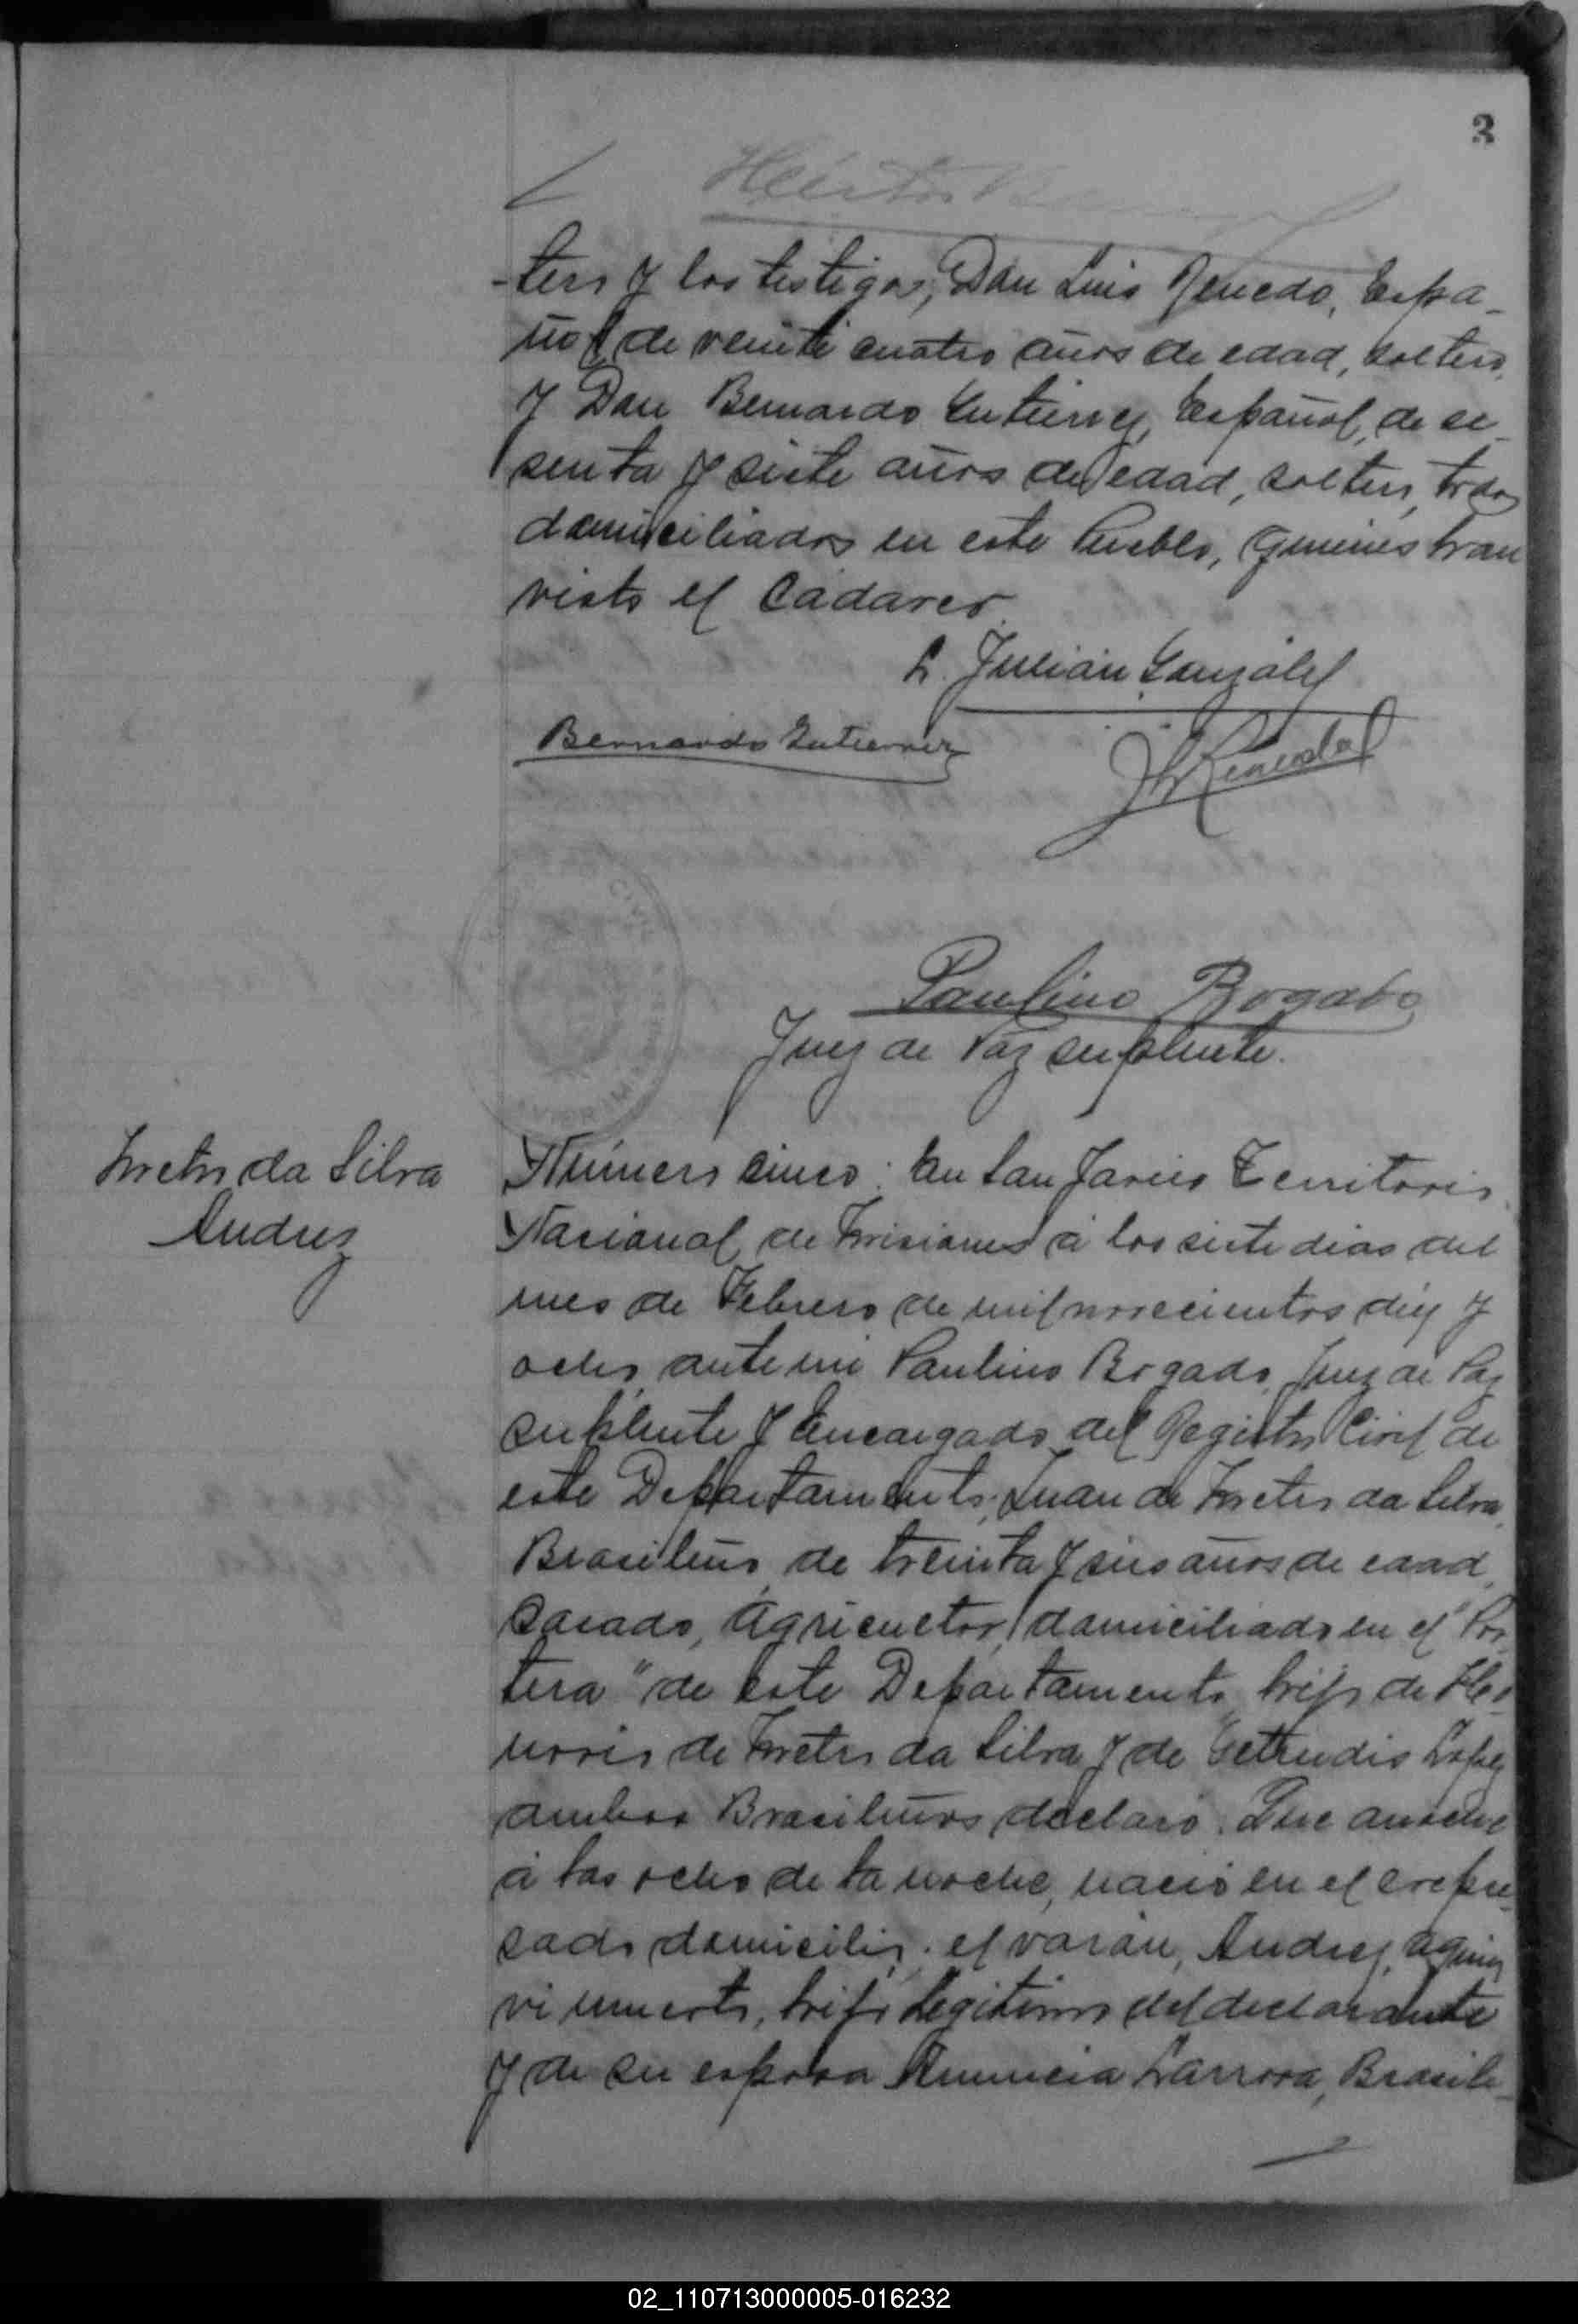 3
-tero y los testigos, Don Luis Renedo, Espa-
ñol, de veinte cuatro años de edad, soltero,
y Don Bernardo Gutierrez, Español, de se-
senta y siete años de edad, soltero, todos
domiciliados en este Pueblo, quienes han
visto el Cadaver.
L. Julián González
Bernardo Gutierrez
Paulino Bogado
Juez de Paz suplente.
da Silva
Andrez
Número cinco: En San Javier Territorio
Nacional de Misiones á los siete dias del
mes de Febrero de mil novecientos diez y
ocho, ante mi Paulino Bogado, Juez de Paz
suplente y Encargado del Registro Civil de
este Departamento; Juan de da Silva,
Brasilero, de treinta y seis años de edad,
casado, agricultor, domiciliado en el "Por-
tera" de este Departamento, hijo de Ho-
norio de da Silva y de Getrudis Lopez
ambos Brasileros, declaró: Que anoche
á las ocho de la noche, nació en el expre-
sado domicilio: el varón, Andrez, aquien
vi muerto, hijo legitimo del declarante
y de su esposa Larrosa, Brasile-
02_110713000005-016232